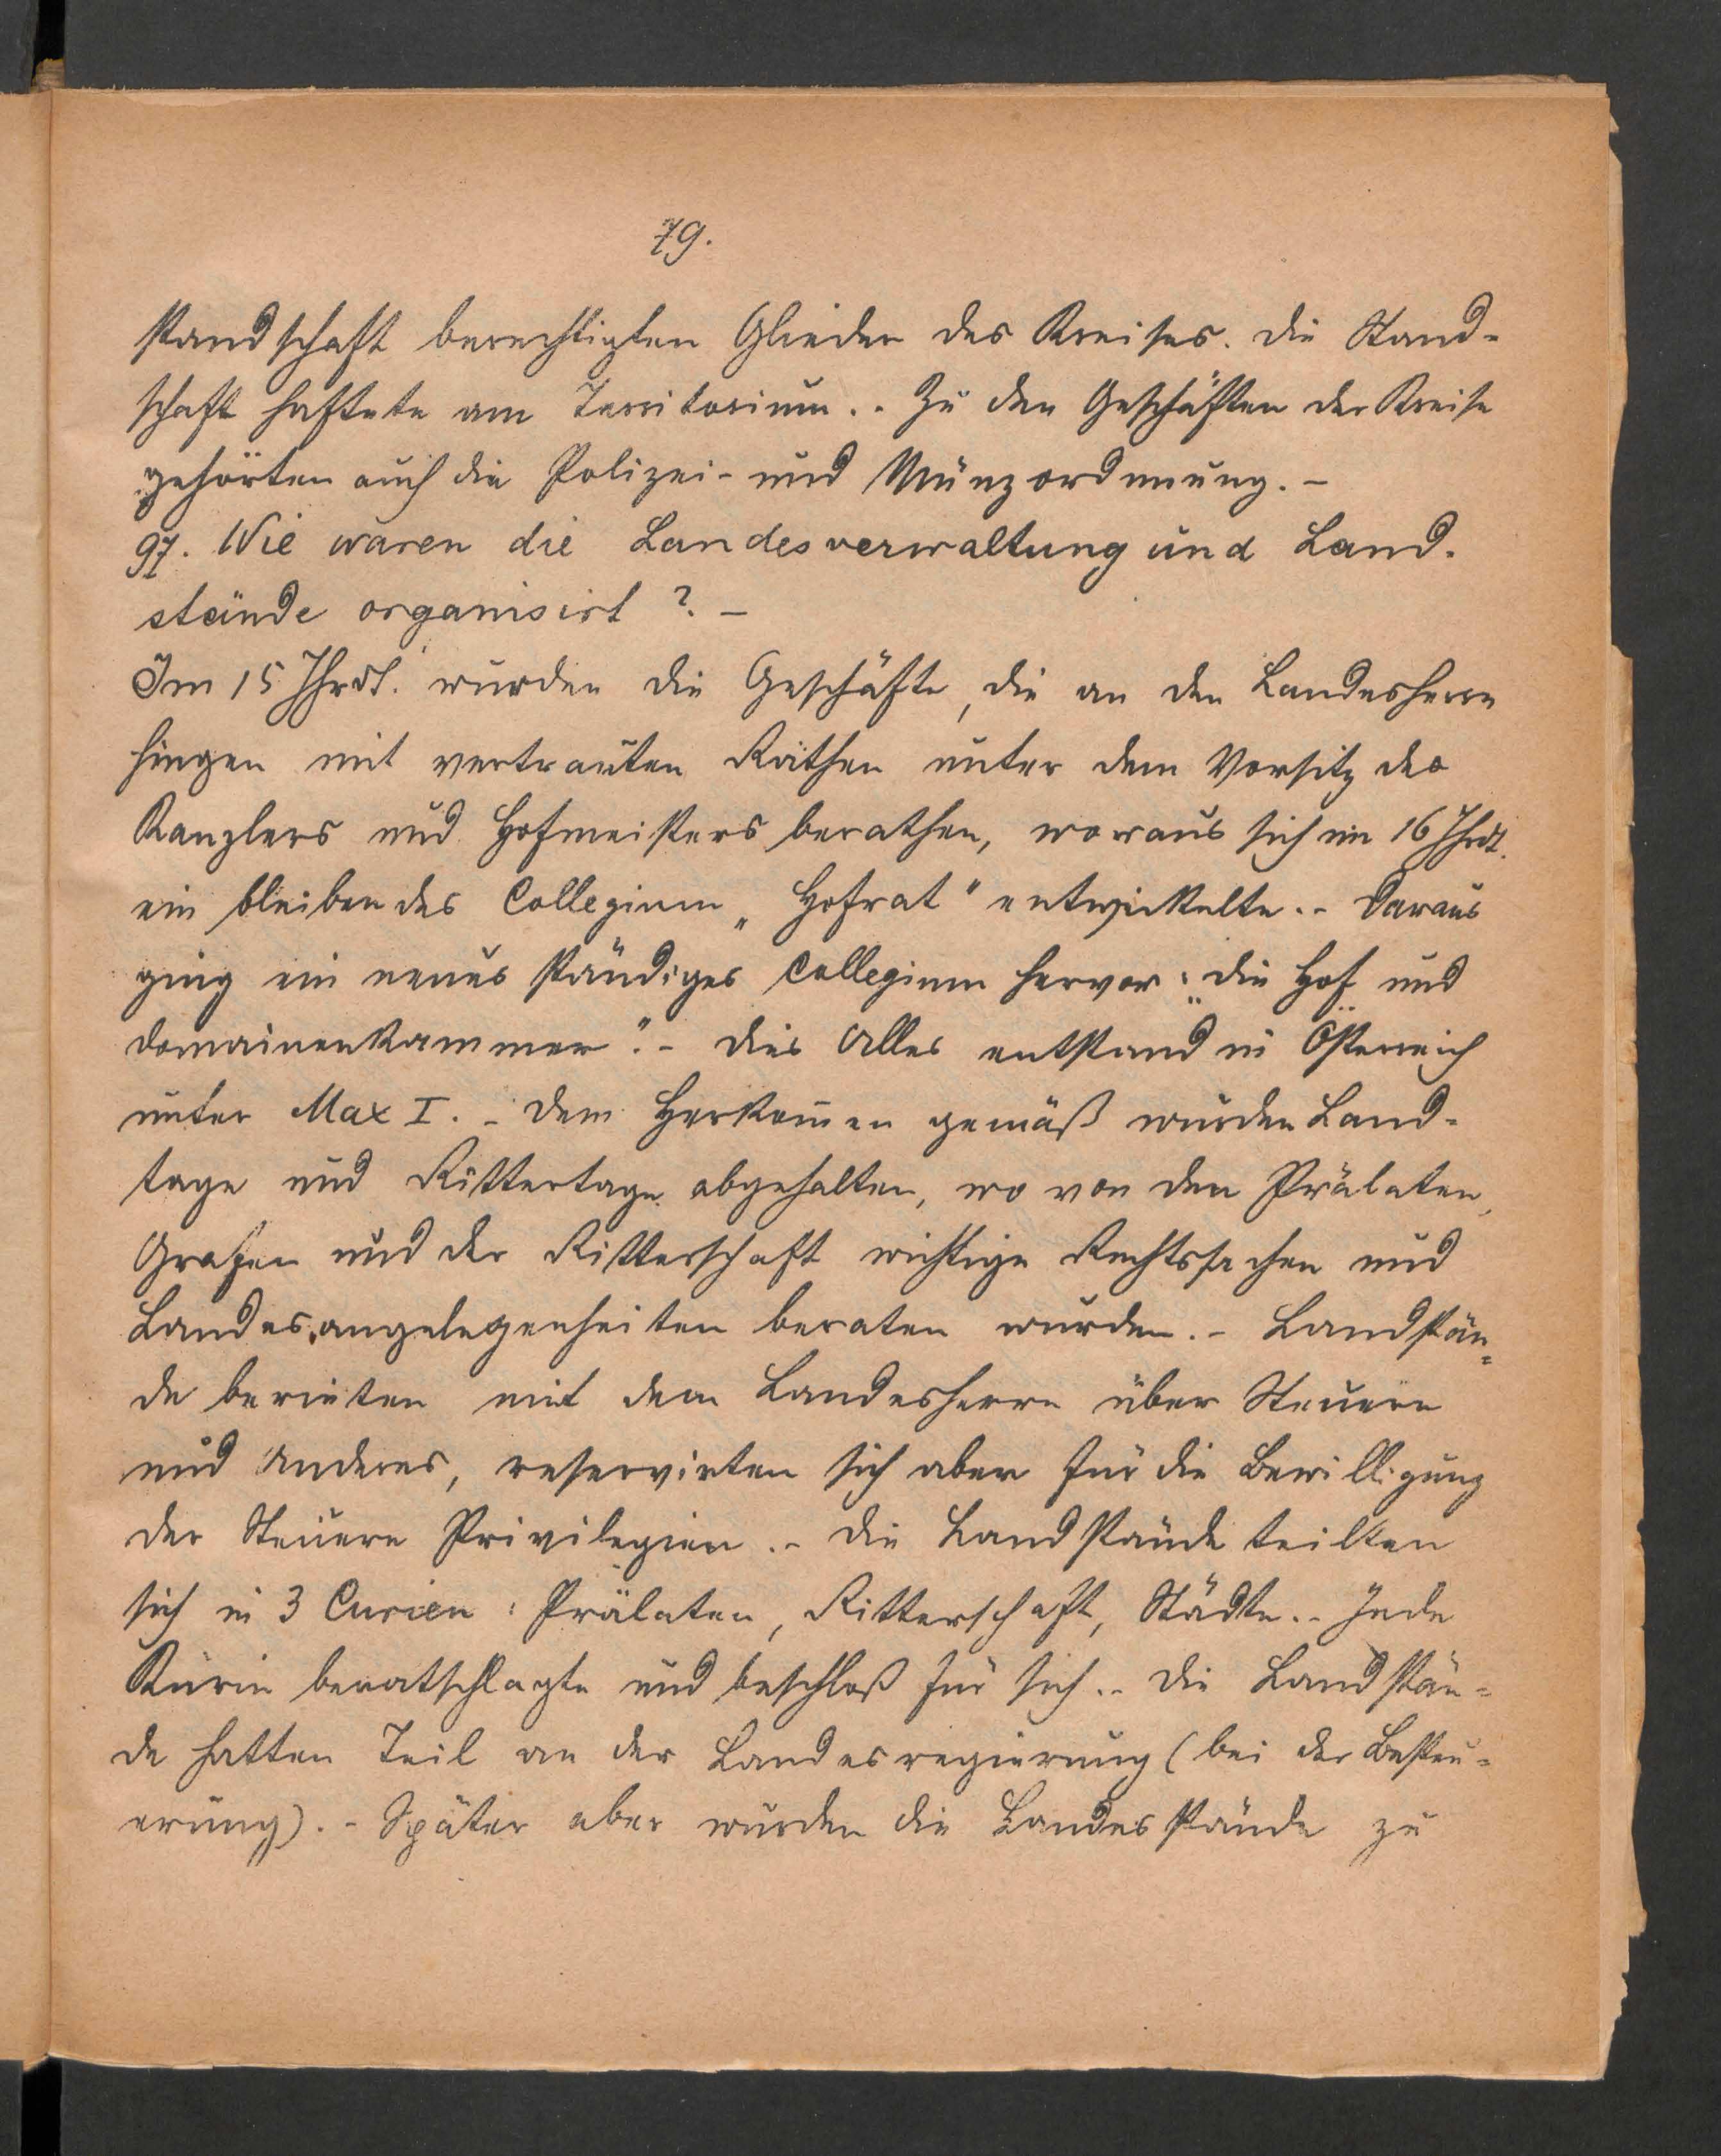 79.
standschaft berechtigten Glieder des Kreises. Die Stand-
schaft haftete am Territorium. - Zu den Geschäften der Kreise
gehörten auch die Polizei- und Münzordnung. -
97. Wie waren die Landesverwaltung und Land-
stände organisirt ? -
Im 15 Jhrdt. wurden die Geschäfte, die an den Landesherrn
hingen mit vertrauten Räthen unter dem Vorsitz des
Kanzlers und Hofmeisters berathen, woraus sich im 16 Jhrdt.
ein bleibendes Collegium „Hofrat" entwickelte. - Daraus
ging ein neues ständiges Collegium hervor: „die Hof und
Domainenkammer". - Dies Alles entstand in Österreich
unter Max I. - Dem Herkom̄en gemäß wurden Land-
tage und Rittertage abgehalten, wo von den Prälaten,
Grafen und der Ritterschaft wichtige Rechtssachen und
Landesangelegenheiten beraten wurden. - Landstän=
de berieten mit dem Landesherrn über Steuern
und Anderes, reservirten sich aber für die Bewilligung
der Steuern Privilegien. - Die Landstände teilten
sich in 3 Curien : Prälaten, Ritterschaft, Städte. - Jede
Kurie beratschlagte und beschloß für sich. - Die Landstän=
de hatten Teil an der Landesregierung (bei der Besteu=
erung). - Später aber wurden die Landesstände zu